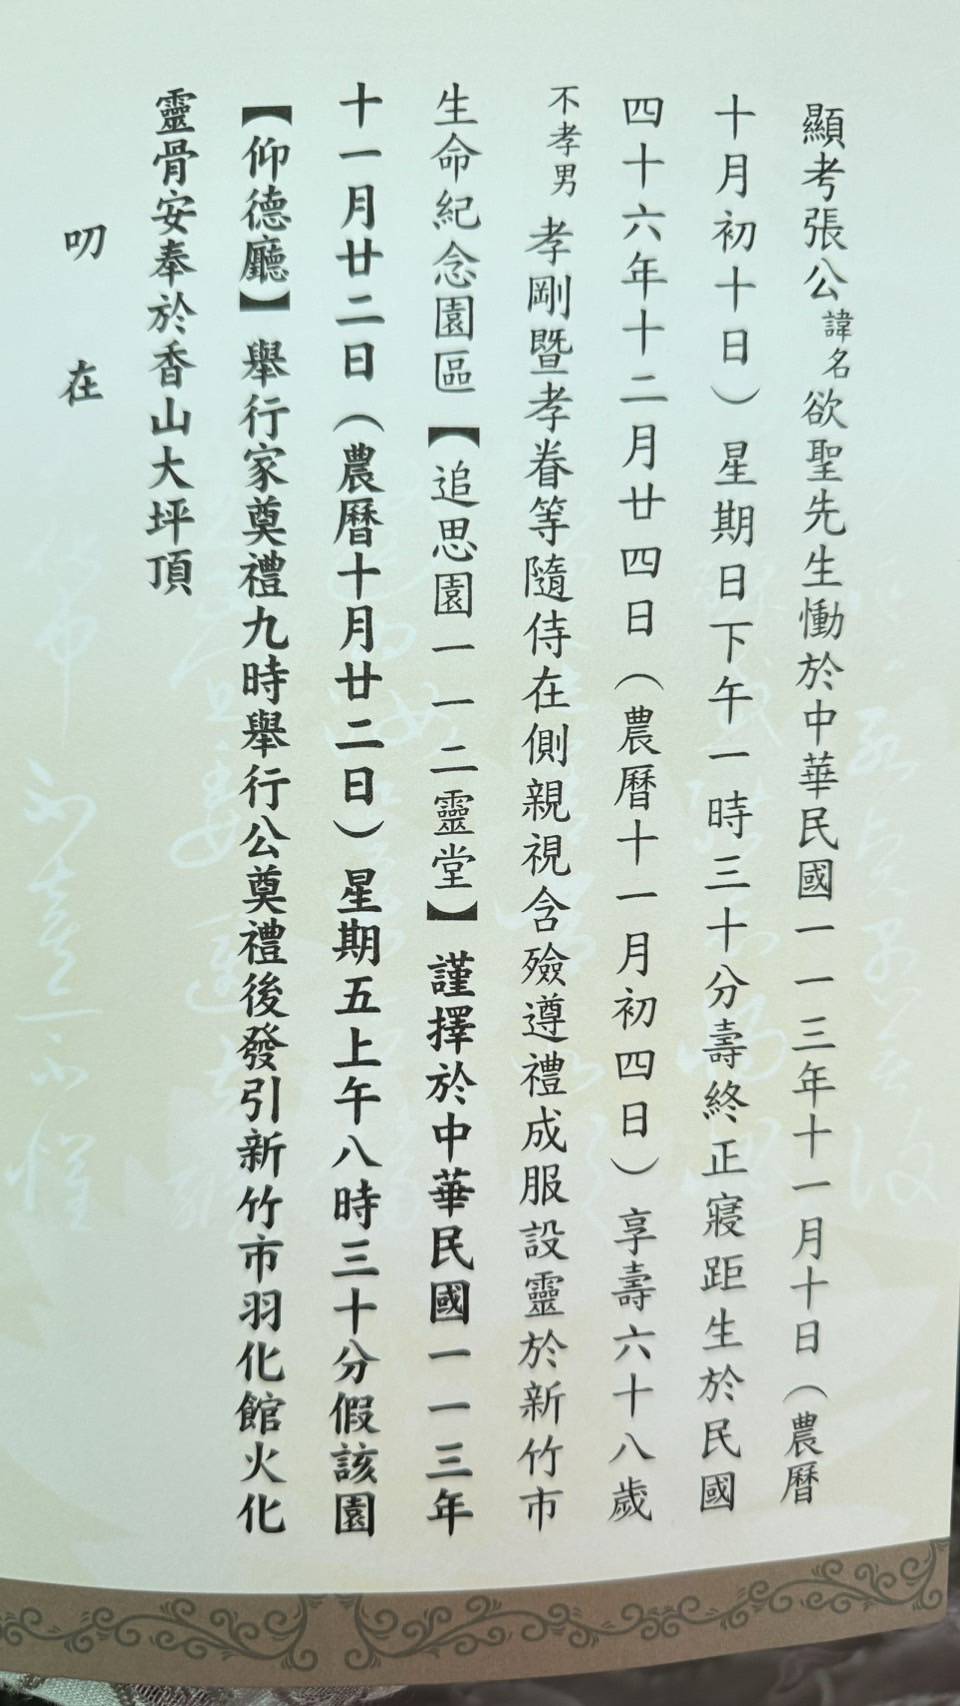 顯考張公諱名欲聖先生慟於中華民國一一三年十一月十日（農曆
十月初十日）星期日下午一時三十分壽終正寢距生於民國
四十六年十二月廿四日（農曆十一月初四日）享壽六十八歲
不孝男孝剛暨孝眷等隨侍在側親視含殮遵禮成服設靈於新竹市
生命紀念園區【追思園一一二靈堂】謹擇於中華民國一一三年
十一月廿二日（農曆十月廿二日）星期五上午八時三十分假該園
【仰德廳】舉行家奠禮九時舉行公奠禮後發引新竹市羽化館火化
靈骨安奉於香山大坪頂
叨在